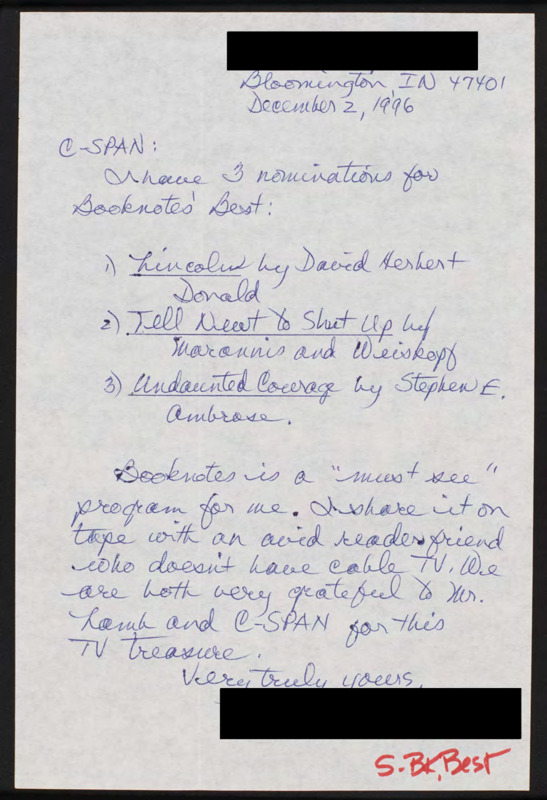 Bloomington, IN 47401
December 2, 1996
C-SPAN:
I have 3 nominations for
Booknotes' Best:
1) Lincoln by David Herbert
Donald
2) Tell Newt to Shut Up by
Marannis and Weiskopf
3) Undaunted Courage by Stephen E.
Ambrose.
Booknotes is a "must see"
program for me. I share it on
tape with an avid reader friend
who doesn't have cable TV. We
are both very grateful to Mr.
Lamb and C-SPAN for this
TV treasure.
Very truly yours,
S. Bk. Best